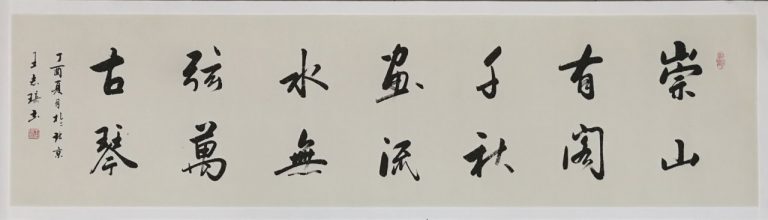 崇山
有阁
千秋
画流
水無
弦萬
古琴
丁酉夏月於北京
王志